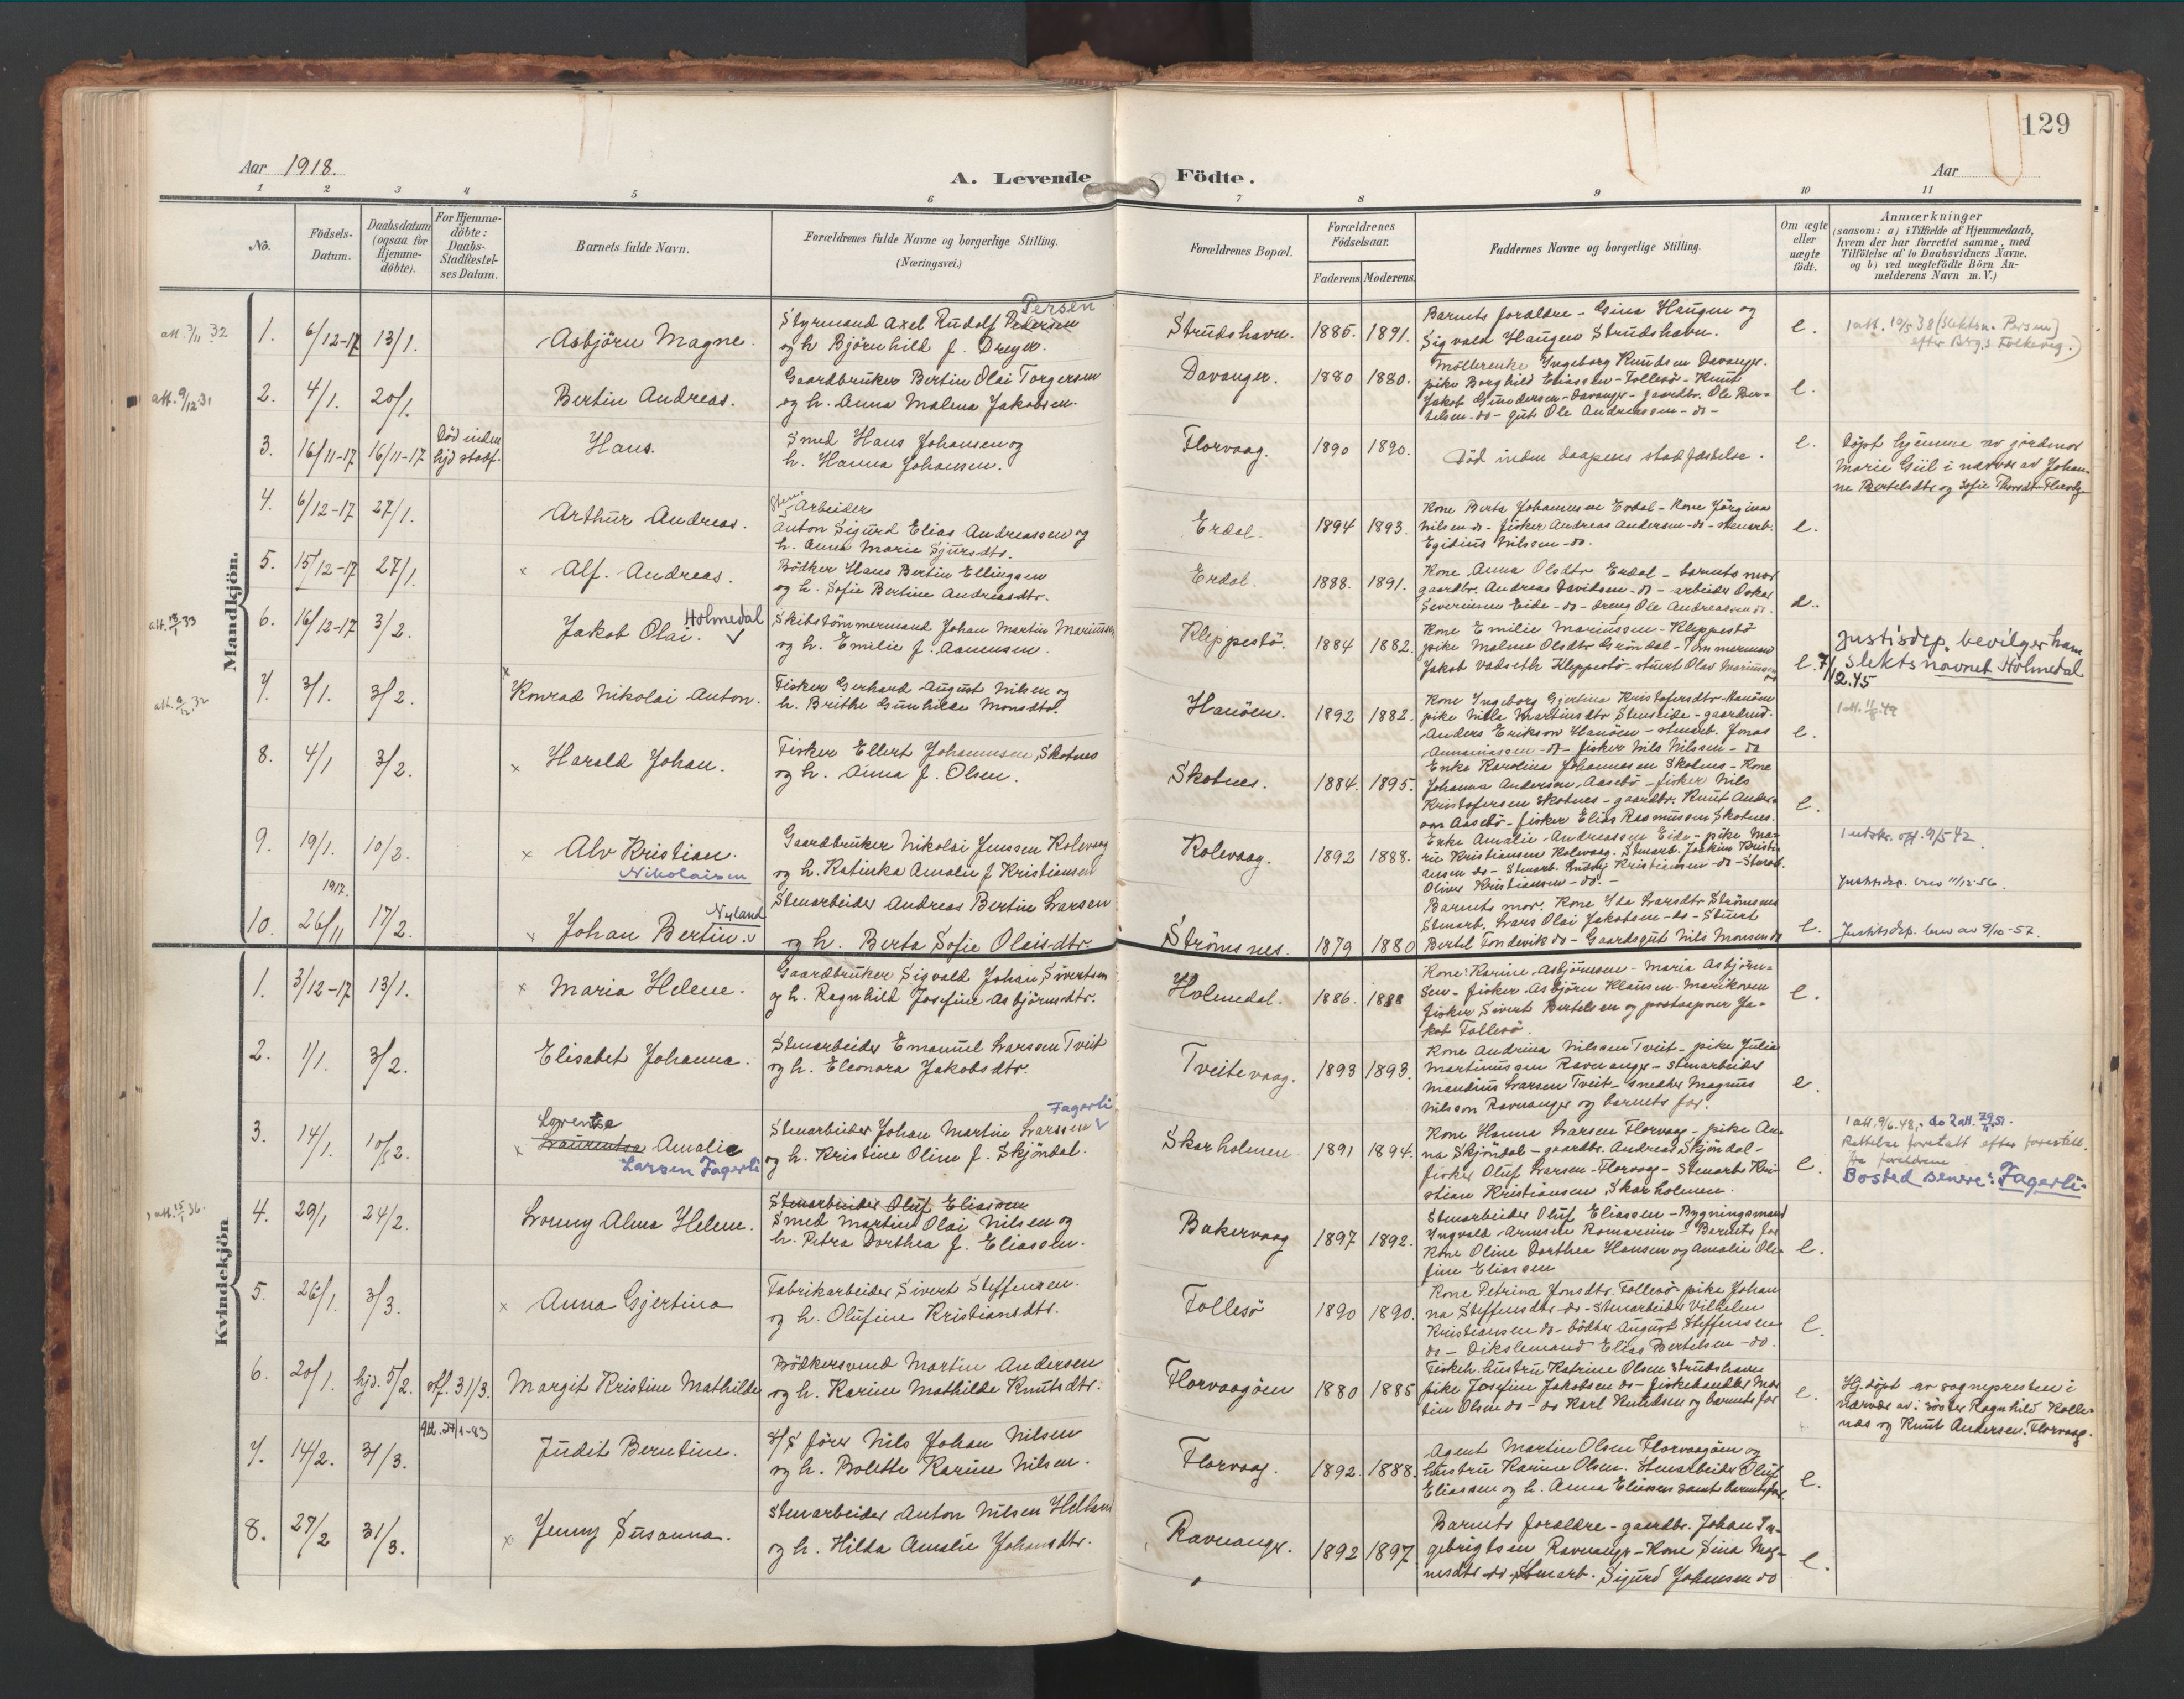 129
Aar 1918.
A. Levende Födte.
Aar
1 2 3 4 5 6 7 8 9 10 11
No.
Födsels-
Datum.
Daabsdatum
(ogsaa for
Hjemme-
döbte).
For Hjemme-
döbte:
Daabs-
Stadfæstel-
ses Datum.
Barnets fulde Navn.
Forældrenes fulde Navne og borgerlige Stilling.
(Næringsvei.)
Forældrenes Bopæl.
Forældrenes
Födselsaar.
Faderens. Moderens.
Faddernes Navne og borgerlige Stilling.
Om ægte
eller
uægte
födt.
Anmærkninger
(saasom: a) i Tilfælde af Hjemmedaab,
hvem der har forrettet samme, med
Tilföielse af to Daabsvidners Navne,
og b) ved uægtefödte Börn An-
melderens Navn m. V.)
Mandkjön.
att. 3/11 32
1. 6/12-17 13/1. Asbjörn Magne.
Persen
Styrmand Axel Rudolf Pedersen
og h Björnhild f. Dreyer.
Strudshavn. 1885. 1891.
Barnets forældre - Gina Haugen og
Sigvald Haugen Strudshavn.
e.
1 att. 10/5 38 (Slektsn. Persen)
efter Brg.s Folkereg.)
att. 9/12 31
2. 4/1. 20/1. Bertin Andreas.
Gaardbruker Bertin Olai Torgersen
og h. Anna Malena Jakobsen.
Davanger. 1880 1880.
Möllerenke Ingeborg Knudsen Davanger.
pike Borghild Eliassen - Follesö - Knut
Jakob Gundersen - Davanger - gaardbr. Ole Ber-
telsen - do - gut Ole Andreassen - do -
e.
3. 16/11-17 16/11-17
Död inden
hjd stadf.
Hans.
Smed Hans Johansen og
h. Hanna Johansen.
Florvaag. 1890 1890.
Död inden daapens stadfæstelse.
e.
Döpt hjemme av jordmor
Marie Giil i nærvær av Johan-
ne Bertelsdtr og Sofie Thorsdtr Florvåg
4. 6/12-17 27/1. Arthur Andreas.
Sten Arbeider
Anton Sigurd Elias Andreassen og
h. Anna Marie Sjursdtr.
Erdal. 1894 1893.
Kone Berta Johannesen Erdal - Kone Jörgine
Nilsen - do - fisker Andreas Andersen - do - stenarb.
Egidius Nilssen - do.
e.
5. 15/12-17 27/1. × Alf. Andreas.
Bödker Hans Bertin Ellingsen
og h. Sofie Bertine Andreasdtr.
Erdal. 1888. 1891.
Kone Anna Olsdtr Erdal - barnets mor
gaardbr. Andreas Davidsen - do - arbeider Oskar
Severinsen Eide - do - dreng Ole Andreassen do.
e.
att. 13/1 33
6. 16/12-17 3/2. Jakob Olai. Holmedal
Skibstömmermand Johan Martin Mariussen
og h. Emilie f. Aamensen.
Kleppestö. 1884 1882.
Kone Emilie Mariussen - Kleppestö
pike Malene Olsdtr Gröndal - Tömmermand
Jakob Vadseth Kleppestö - stuert Olav Mariussen
do
e.
Justisdep. bevilger ham
7/12.45 slektsnavnet Holmedal
att. 9/12.32
7. 3/1. 3/2. × Konrad Nikolai Anton.
Fisker Gerhard August Nilsen og
h. Brithe Gunhilde Monsdtr.
Hanöen. 1892 1882.
Kone Ingeborg Gjertine Kristofersdtr Hanöen
pike Nille Martinsdtr Steneide - gaardmd.
Anders Erikson Hanöen - stenarb. Jonas
Annaniassen - do - fisker Nils Nilssen - do
e.
1 att. 11/8 49
8. 4/1 3/2. × Harald Johan.
Fisker Ellert Johannesen Skotnes
og h. Anna f. Olsen.
Skotnes. 1884. 1895.
Enke Karolina Johannesen Skotnes - Kone
Johanna Anderson, Aasebö - fisker Nils
Kristofersen Skotnes - gaardbr. Knut Ander-
son Aasebö - fisker Elias Rasmussen Skotnes.
e.
9. 19/1. 10/2. × Alv Kristian.
Nikolaisen
Gaardbruker Nikolai Jenssen Kolevaag
og h. Katinka Amalie f Kristiansen
Kolevaag. 1892 1888.
Enke Amalie Andreassen Eide - pike Ma-
rie Kristiansen Kolevaag. Stenarb. Joakim Kristi-
ansen do - Stenarb. Ludvig Kristiansen - do - Stenarb.
Oliver Kristiansen - do. -
1 utskr. opf. 9/5 42.
Justisdep. brev 11/12-56.
1917.
10. 26/11 17/2. × Johan Bertin. Nyland
Stenarbeider Andreas Bertin Larsen
og h. Berta Sofie Olaisdtr.
Strömsnes. 1879 1880
Barnets mor. Kone Ida Larsdtr Strömsnes
Stenarb. Lars Olai Jakobsen - do - Stuert
Bertil Tondevik do - Gaardsgut Nils Monsen do
e.
Justitsdep. brev av 9/10-57.
Kvindekjön
1. 3/12-17 13/1. × Maria Helene.
Gaardbruker Sigvald Johan Sivertsen
og h. Ragnhild Josefine Asbjörnsdtr.
Holmedal. 1886. 1888
Kone: Karine Asbjörnsen - Maria Asbjörn-
sen - fisker Asbjörn Klausen - Marikoven
fisker Sivert Bertelsen og postaapner Ja-
kob Follesö.
e.
2. 1/1. 3/2. Elisabet Johanna.
Stenarbeider Emanuel Larsen Tveit
og h. Eleonora Jakobsdtr.
Tveitevaag. 1893 1893.
Kone Andrina Nilsen Tveit - pike Julia
Martinussen Ravnanger - stenarbeider
Mandius Larsen Tveit - snedker Magnus
Nilsson Ravnanger og barnets far.
e.
3. 14/1. 10/2. Lorentse
× Laurentse Amalie
Larsen Fagerli
Fagerli
Stenarbeider Johan Martin Larssen
og h. Kristine Oline f. Skjöndal.
Skarholmen 1891 1894.
Kone Hanna Larsen Florvaag - pike An-
na Skjöndal - gaardbr. Andreas Skjöndal -
fisker Oluf Larsen - Florvaag - Stenarb. Kri-
stian Kristiansen Skarholmen.
e.
1 att. 9/6.48, - do 2 att. 29/11 51.
Rettelse foretatt efter forestill.
fra foreldrene
Bosted senere: Fagerli.
att. 15/1 36.
4. 29/1 24/2. Lonny Alma Helene.
Stenarbeider Oluf Eliassen
Smed Martin Olai Nilsen og
h. Petra Dorthea f. Eliassen.
Bakervaag 1897 1892.
Stenarbeider Oluf Eliassen - Bygningsmand
Ingvald Arnesen Romarheim - Barnets far
Kone Oline Dorthea Hansen og Amalie Ole-
fine Eliassen
e.
5. 26/1. 3/3. × Anna Gjertina
Fabrikarbeider Sivert Steffensen.
og h. Olufine Kristiansdtr.
Follesö 1890 1890.
Kone Petrina Jonsdtr. Follesö - pike Johan
na Steffensdtr - do - stenarbeider Vilhelm
Kristiansen do - bödker August Steffensen
do - Dikslemand Elias Bertelsen - do.
e.
6. 20/1. hjd. 5/2. stf. 31/3. Margit Kristine Mathilde
Bödkersvend Martin Andersen
og h. Karine Mathilde Knutsdtr.
Florvaagöen 1880 1885
Fiskeh. hustru Katrine Olsen Strudshavn
pike Josefine Jakobsen do - fiskehandler Mar
tin Olsen do - do Karl Knudsen og barnets far
e.
Hj. döpt av sognepresten i
nærvær av: söster Ragnhild Kolle-
nas og Knut Andersen. Florvaag.
Att. 27/1-83
7. 14/2. 31/3. Judit Berntine.
S/S förer Nils Johan Nilsen
og h. Bolette Karine Nilsen.
Florvaag. 1892 1888.
Agent Martin Olsen Florvaagöen og
hustru Karine Olsen. Stenarbeider Oluf
Eliassen og h. Anna Eliassen samt barnets far
e.
8. 27/2 31/3. × Jenny Susanna.
Stenarbeider Anton Nilsen Helland
og h. Hilda Amalie Johansdtr.
Ravnanger. 1892 1897.
Barnets forældre - gaardbr. Johan In-
gebrigtsen Ravnanger - Kone Sina Mag-
nesdtr do - Stenarb. Sigurd Johansen do
e.